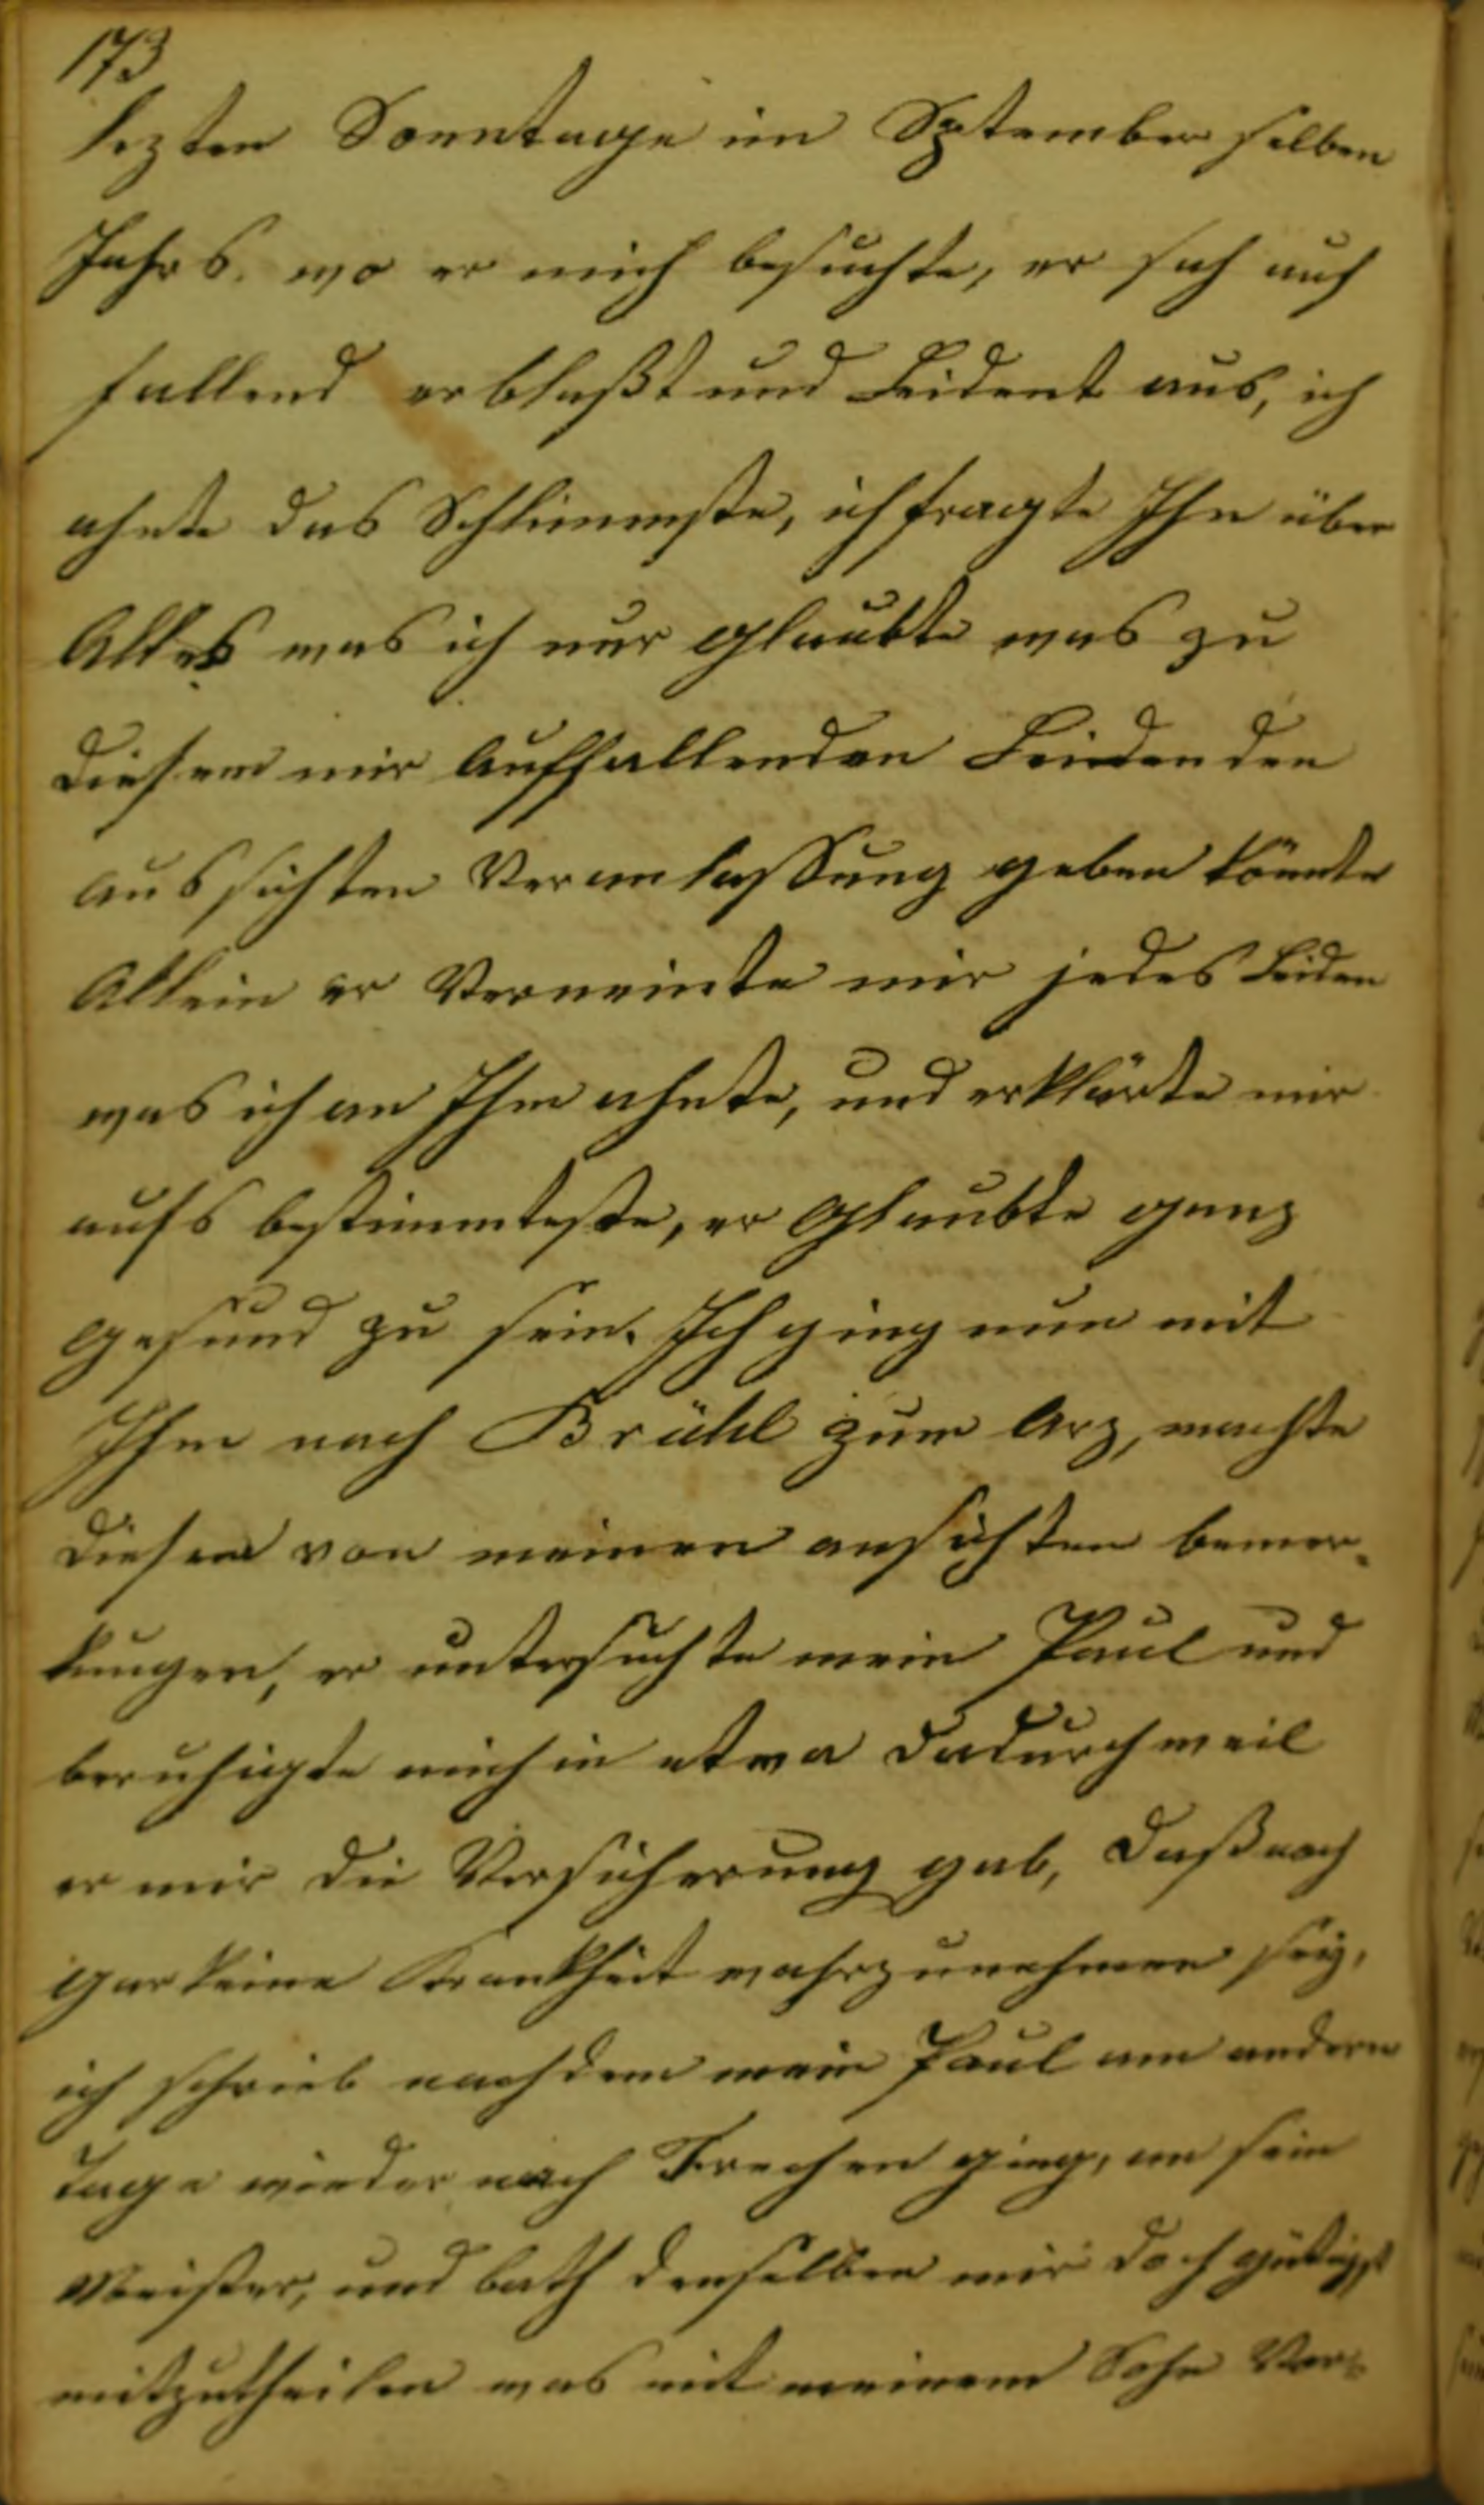 173
lezten Sonntage im Sptember selben
Jahrs. wo er mich besuchte, er sah auf
fallend erblaßt und Leident aus, ich
ahnte das Schlimmste, ich fragte Ihn über
Alles was ich nur glaubte was zu
diesem mir Auffallenden Leidenden
aussichten Veranlassung geben könnte
Allein er Verneinte mir jedes Leiden
was ich an Ihm ahnte, und erklärte mir
aufs bestimmteste, er glaubte ganz
gesund zu sein. Ich ging nun mit
Ihm nach Brühl zum Arz, machte
diesem von meinen ansichten bemer-
kungen, er untersuchte mein Paul und
beruhigte mich in etwa dadurch weil
er mir die Versicherung gab, daß noch
gar keine Krankheit wahrzunehmen sey,
ich schrieb nachdem mein Paul am andern
tage wieder nach Frechen ging, an sein
Meister, und bath denselben mir doch gütigst
mitzutheilen was mit meinem Sohn Vor-